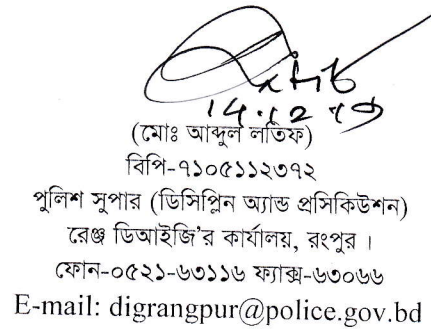 14.12.19
(মোঃ আব্দুল লতিফ)
বিপি-৭১০৫১১২৩৭২
পুলিশ সুপার (ডিসিপ্লিন অ্যান্ড প্রসিকিউশন)
রেঞ্জ ডিআইজি'র কার্যালয়, রংপুর ।
ফোন-০৫২১-৬৩১১৬ ফ্যাক্স-৬৩০৬৬
E-mail: digrangpur@police.gov.bd